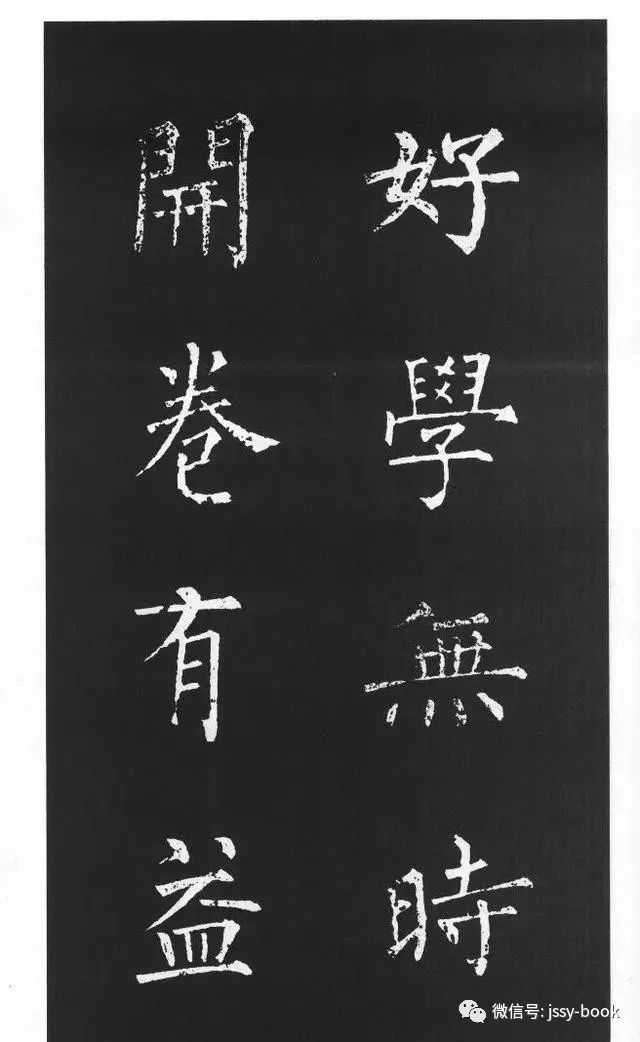 好學無時
開卷有益
微信号: jssy-book